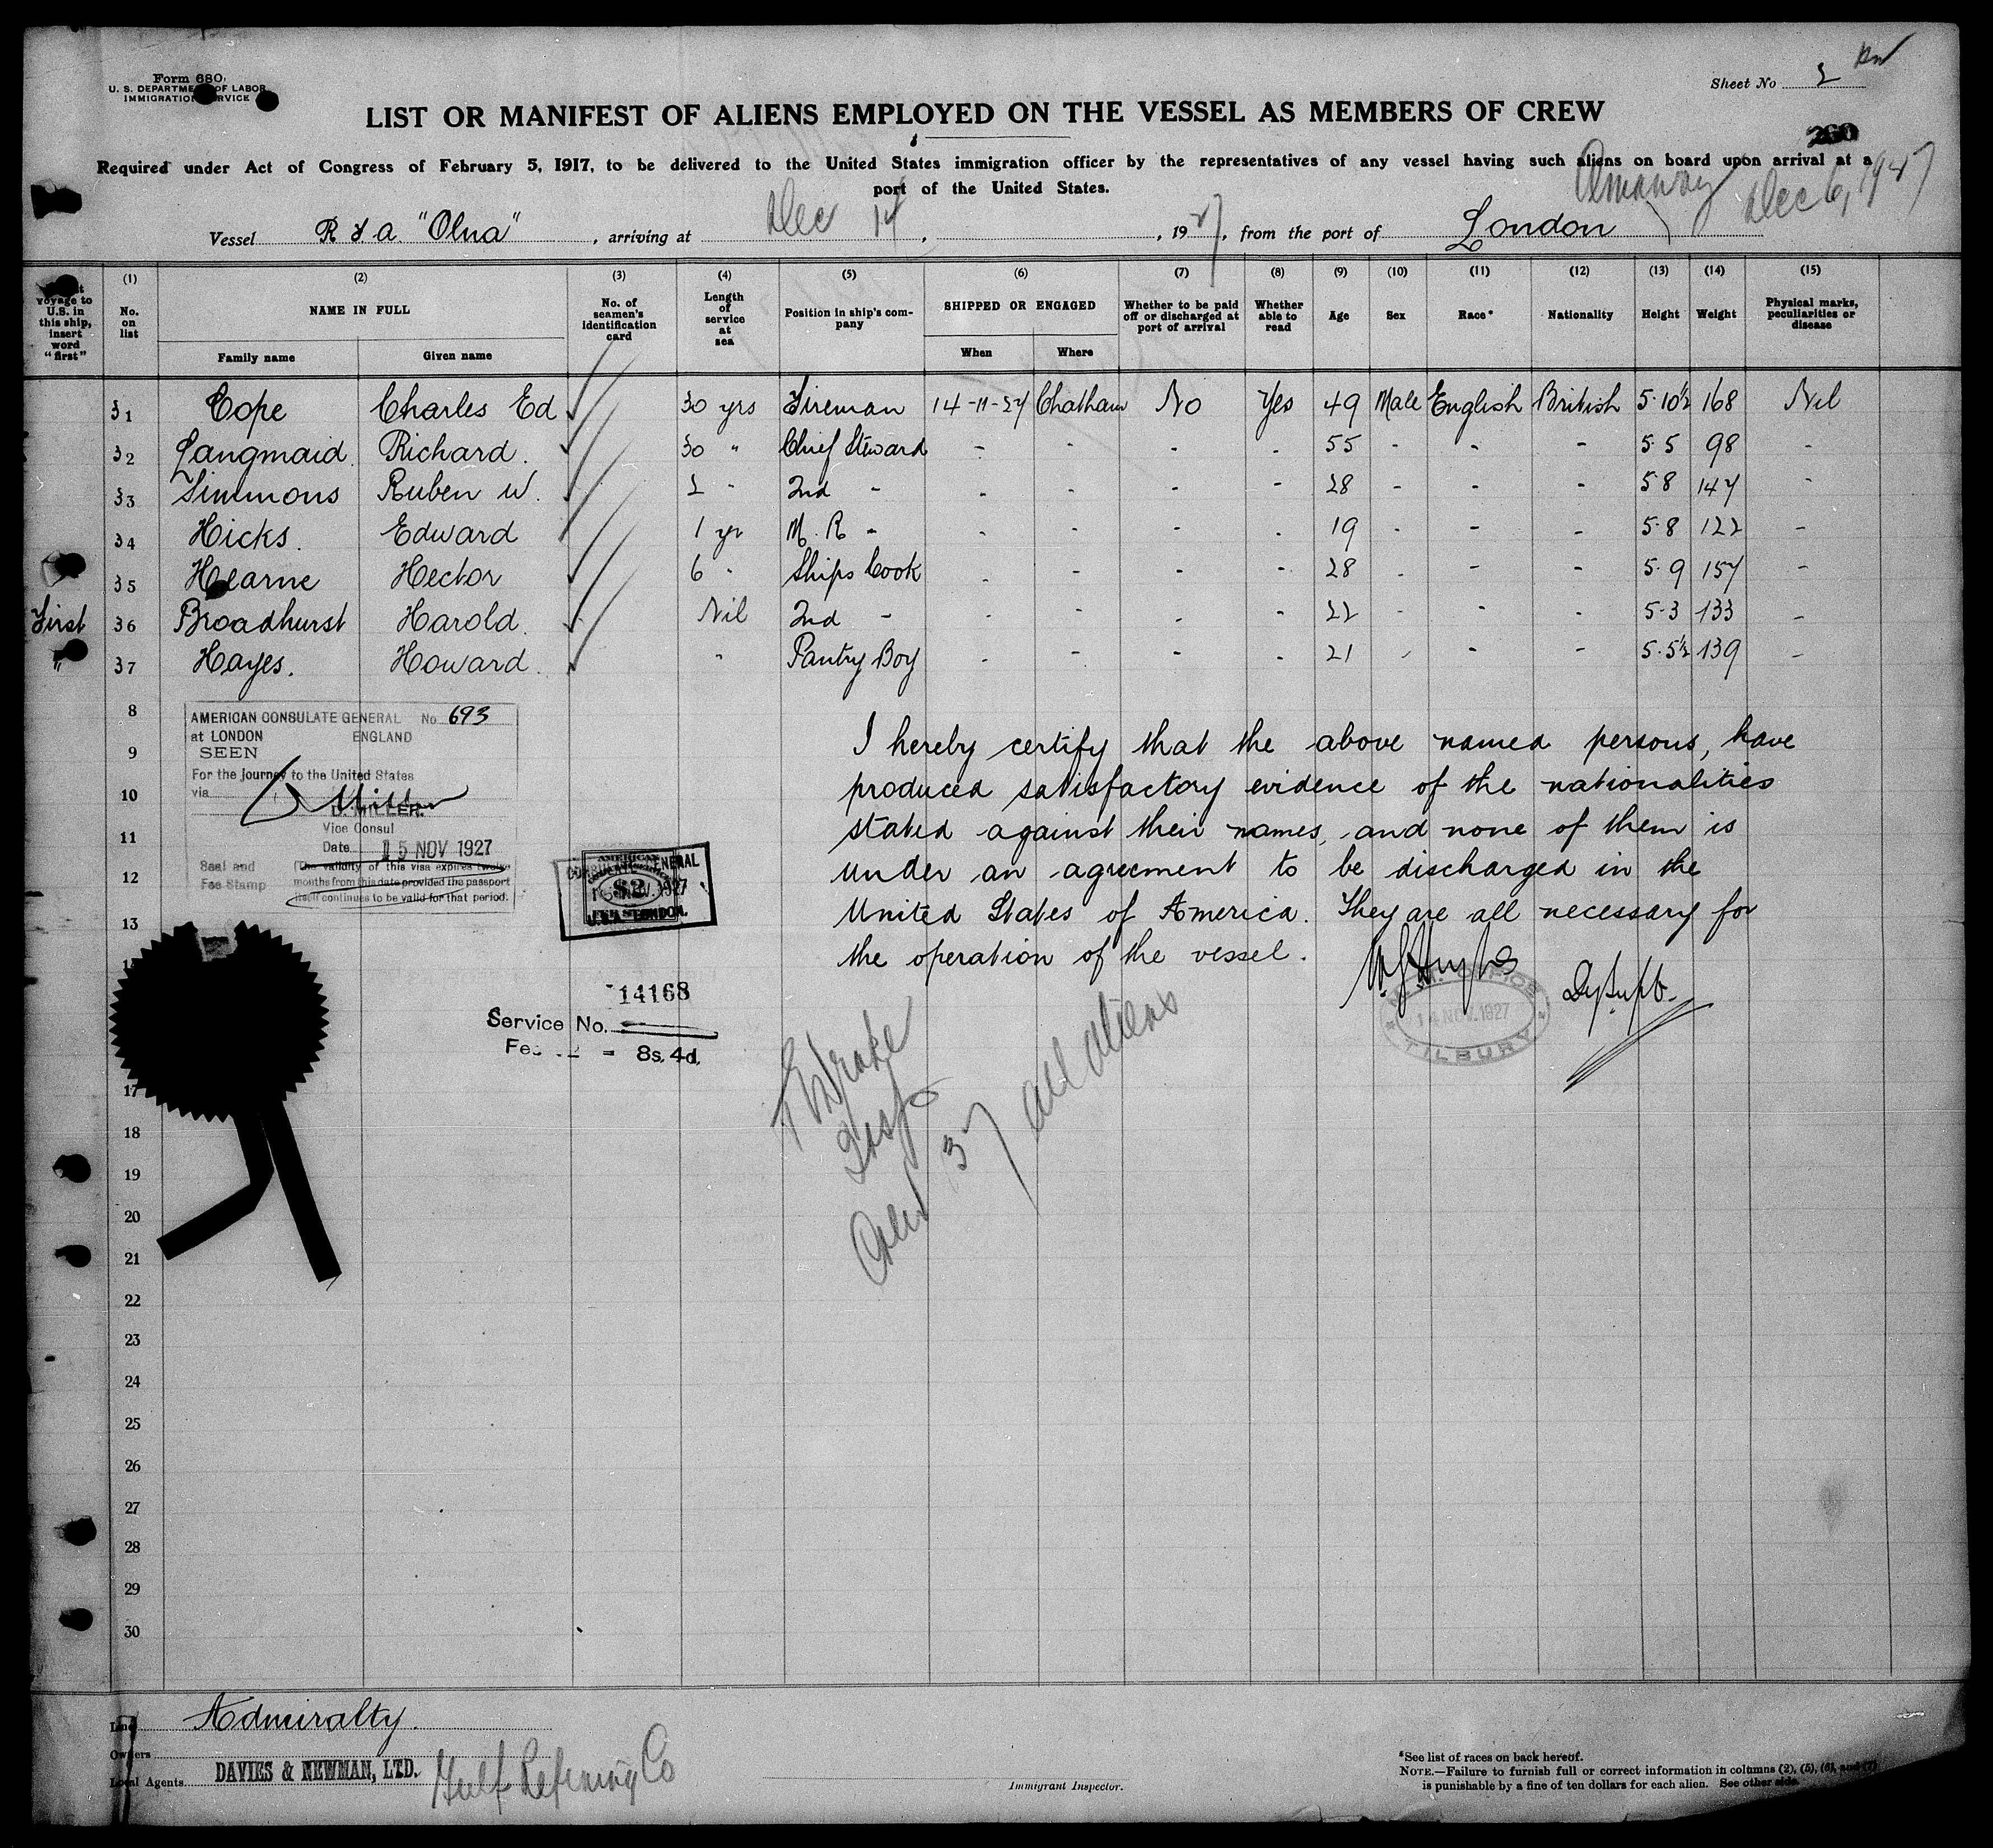 Form 680
U. S. DEPARTMENT OF LABOR
IMMIGRATION SERVICE
Sheet No 2
LIST OR MANIFEST OF ALIENS EMPLOYED ON THE VESSEL AS MEMBERS OF CREW
260
Required under Act of Congress of February 5, 1917, to be delivered to the United States immigration officer by the representatives of any vessel having such aliens on board upon arrival at a
port of the United States.
Dec 6, 1927
Vessel R F A. "Olna", arriving at Dec 14, 1927, from the port of London
voyage to U.S. in this ship, insert word "first"
(1) No. on list
(2) NAME IN FULL
Family name Given name
(3) No. of seamen's identification card
(4) Length of service at sea
(5) Position in ship's company
(6) SHIPPED OR ENGAGED
When Where
(7) Whether to be paid off or discharged at port of arrival
(8) Whether able to read
(9) Age
(10) Sex
(11) Race*
(12) Nationality
(13) Height
(14) Weight
(15) Physical marks, peculiarities or disease
31 Cope Charles Ed 30 yrs Fireman 14-11-27 Chatham No Yes 49 Male English British 5·10½ 168 Nil
32 Langmaid Richard. 30 " Chief Steward - - - - 55 - - - 5·5 98 -
33 Simmons Ruben W. 2 " 2nd - - - - - 28 - - - 5·8 147 -
34 Hicks. Edward 1 yr M. R - - - - - 19 - - - 5·8 122 -
35 Hearne Hector 6 " Ships Cook - - - - 28 - - - 5·9 157 -
First 36 Broadhurst Harold. Nil 2nd - - - - - 22 - - - 5·3 133 -
" 37 Hayes. Howard. " Pantry Boy - - - - 21 - - - 5·5½ 139 -
8
9
10
11
12
13
17
18
19
20
21
22
23
24
25
26
27
28
29
30
AMERICAN CONSULATE GENERAL No 693
at LONDON ENGLAND
SEEN
For the journey to the United States
via
D. MILLER.
Vice Consul
Date 15 NOV 1927
Seal and
Fee Stamp
The validity of this visa expires twelve
months from this date provided the passport
itself continues to be valid for that period.
I hereby certify that the above named persons, have
produced satisfactory evidence of the nationalities
stated against their names, and none of them is
under an agreement to be discharged in the
United States of America. They are all necessary for
the operation of the vessel.
W.G. Hughes
Dy. Supt.
14 NOV. 1927
TILBURY
14168
Service No.
8s. 4d.
Drake
Insp
Crew 37 all aliens
Line Admiralty.
Owners
Local Agents DAVIES & NEWMAN, LTD. Gulf Refining Co
Immigrant Inspector.
*See list of races on back hereof.
NOTE.—Failure to furnish full or correct information in columns (2), (5), (6), and (7)
is punishable by a fine of ten dollars for each alien. See other side.